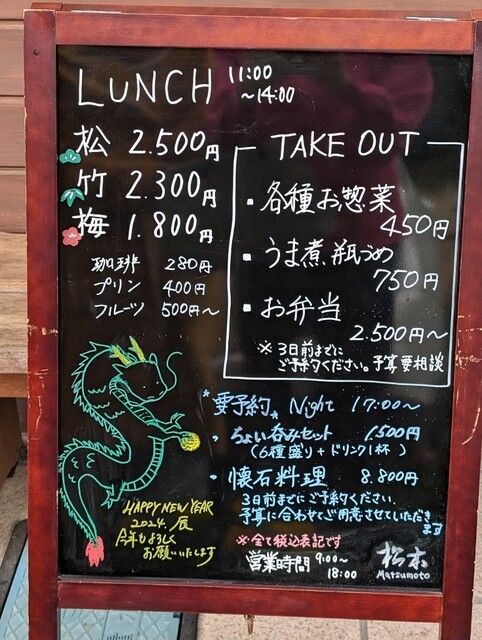 LUNCH 11:00
~14:00
松 2.500円
竹 2.300円
梅 1.800円
珈琲 280円
プリン 400円
フルーツ 500円~
TAKE OUT
・各種お惣菜
450円
・うま煮瓶づめ
750円
・お弁当
2.500円~
※3日前までに
ご予約ください。予算要相談
*要予約* Night 17:00~
・ちょい呑みセット 1.500円
(6種盛り+ドリンク1杯)
・懐石料理 8.800円
3日前までにご予約ください。
予算に合わせてご用意させていただき
ます
HAPPY NEW YEAR
2024. 辰
今年もよろしく
お願いいたします
※全て税込表記です
営業時間 9:00~
18:00
松本
Matsumoto